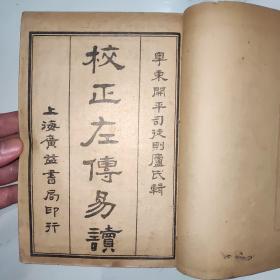 粤東開平司徒則廬氏輯
校正左傳易讀
上海廣益書局印行